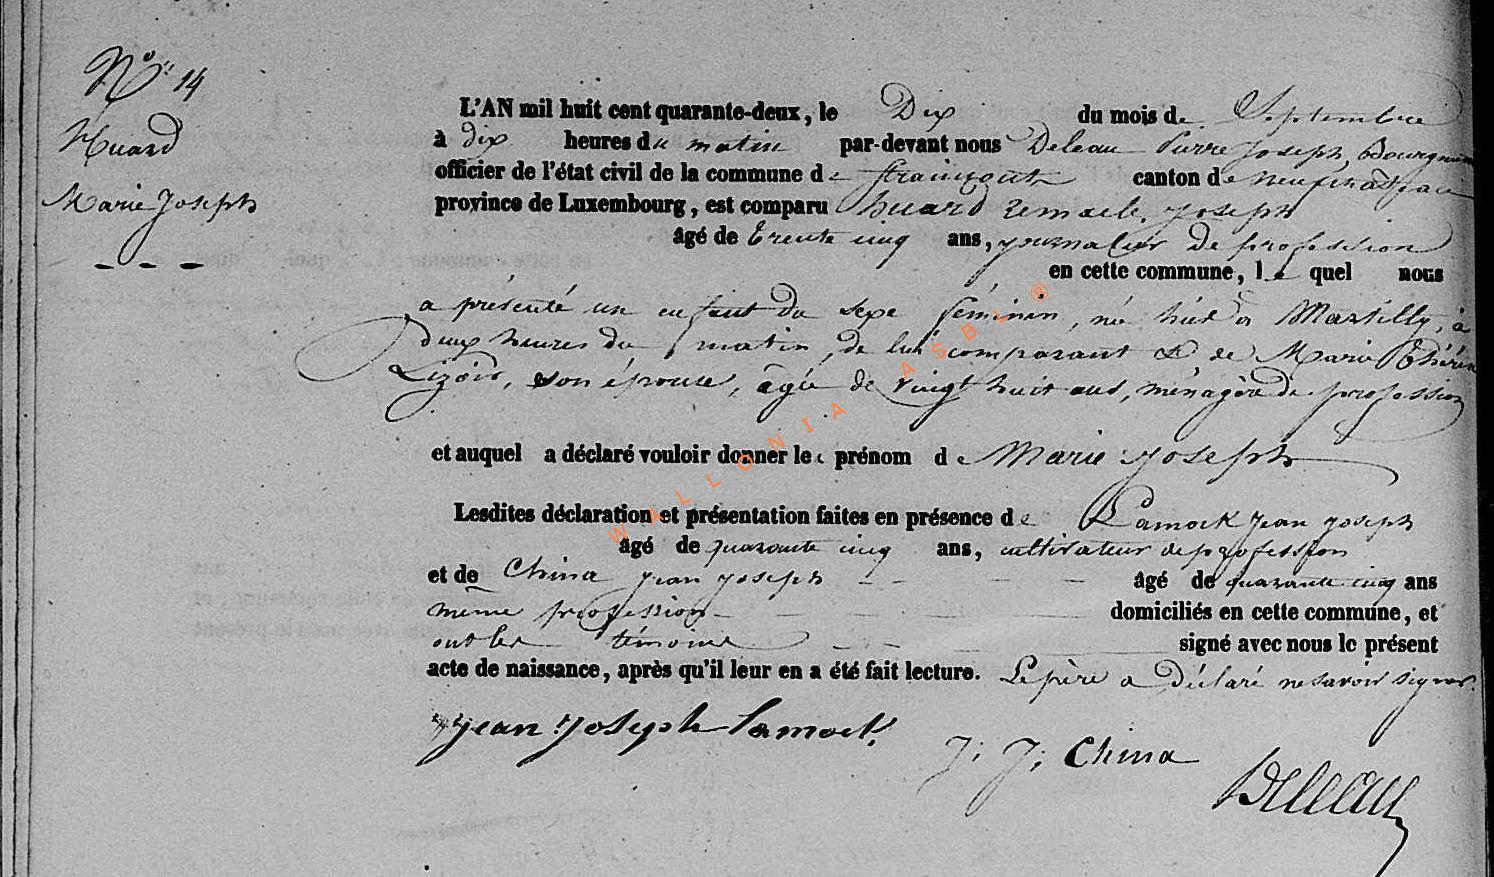 N° 14
Huard
Marie Joseph
L'AN mil huit cent quarante-deux, le Dix du mois de Septembre
à dix heures du matin par-devant nous Deleau Pierre Joseph, Bourgmestre
officier de l'état civil de la commune de Straimont canton de Neufchâteau
province de Luxembourg, est comparu huard Remacle Joseph
âgé de trente cinq ans, journalier de profession
en cette commune, le quel nous
a présenté un enfant du sexe féminin, né hier à Martilly, à
deux heures du matin, de lui comparant et de Marie Thérèse
son épouse, âgée de vingt huit ans, ménagère de profession
et auquel a déclaré vouloir donner le prénom de Marie Joseph
Lesdites déclaration et présentation faites en présence de Lamock Jean Joseph
âgé de quarante cinq ans, cultivateur de profession
et de China Jean Joseph âgé de quarante cinq ans
même profession domiciliés en cette commune, et
ont les témoins signé avec nous le présent
acte de naissance, après qu'il leur en a été fait lecture. Le père a déclaré ne savoir signer.
Jean Joseph Lamock
J. J. China
Deleau
WALLONIA ASBL ®